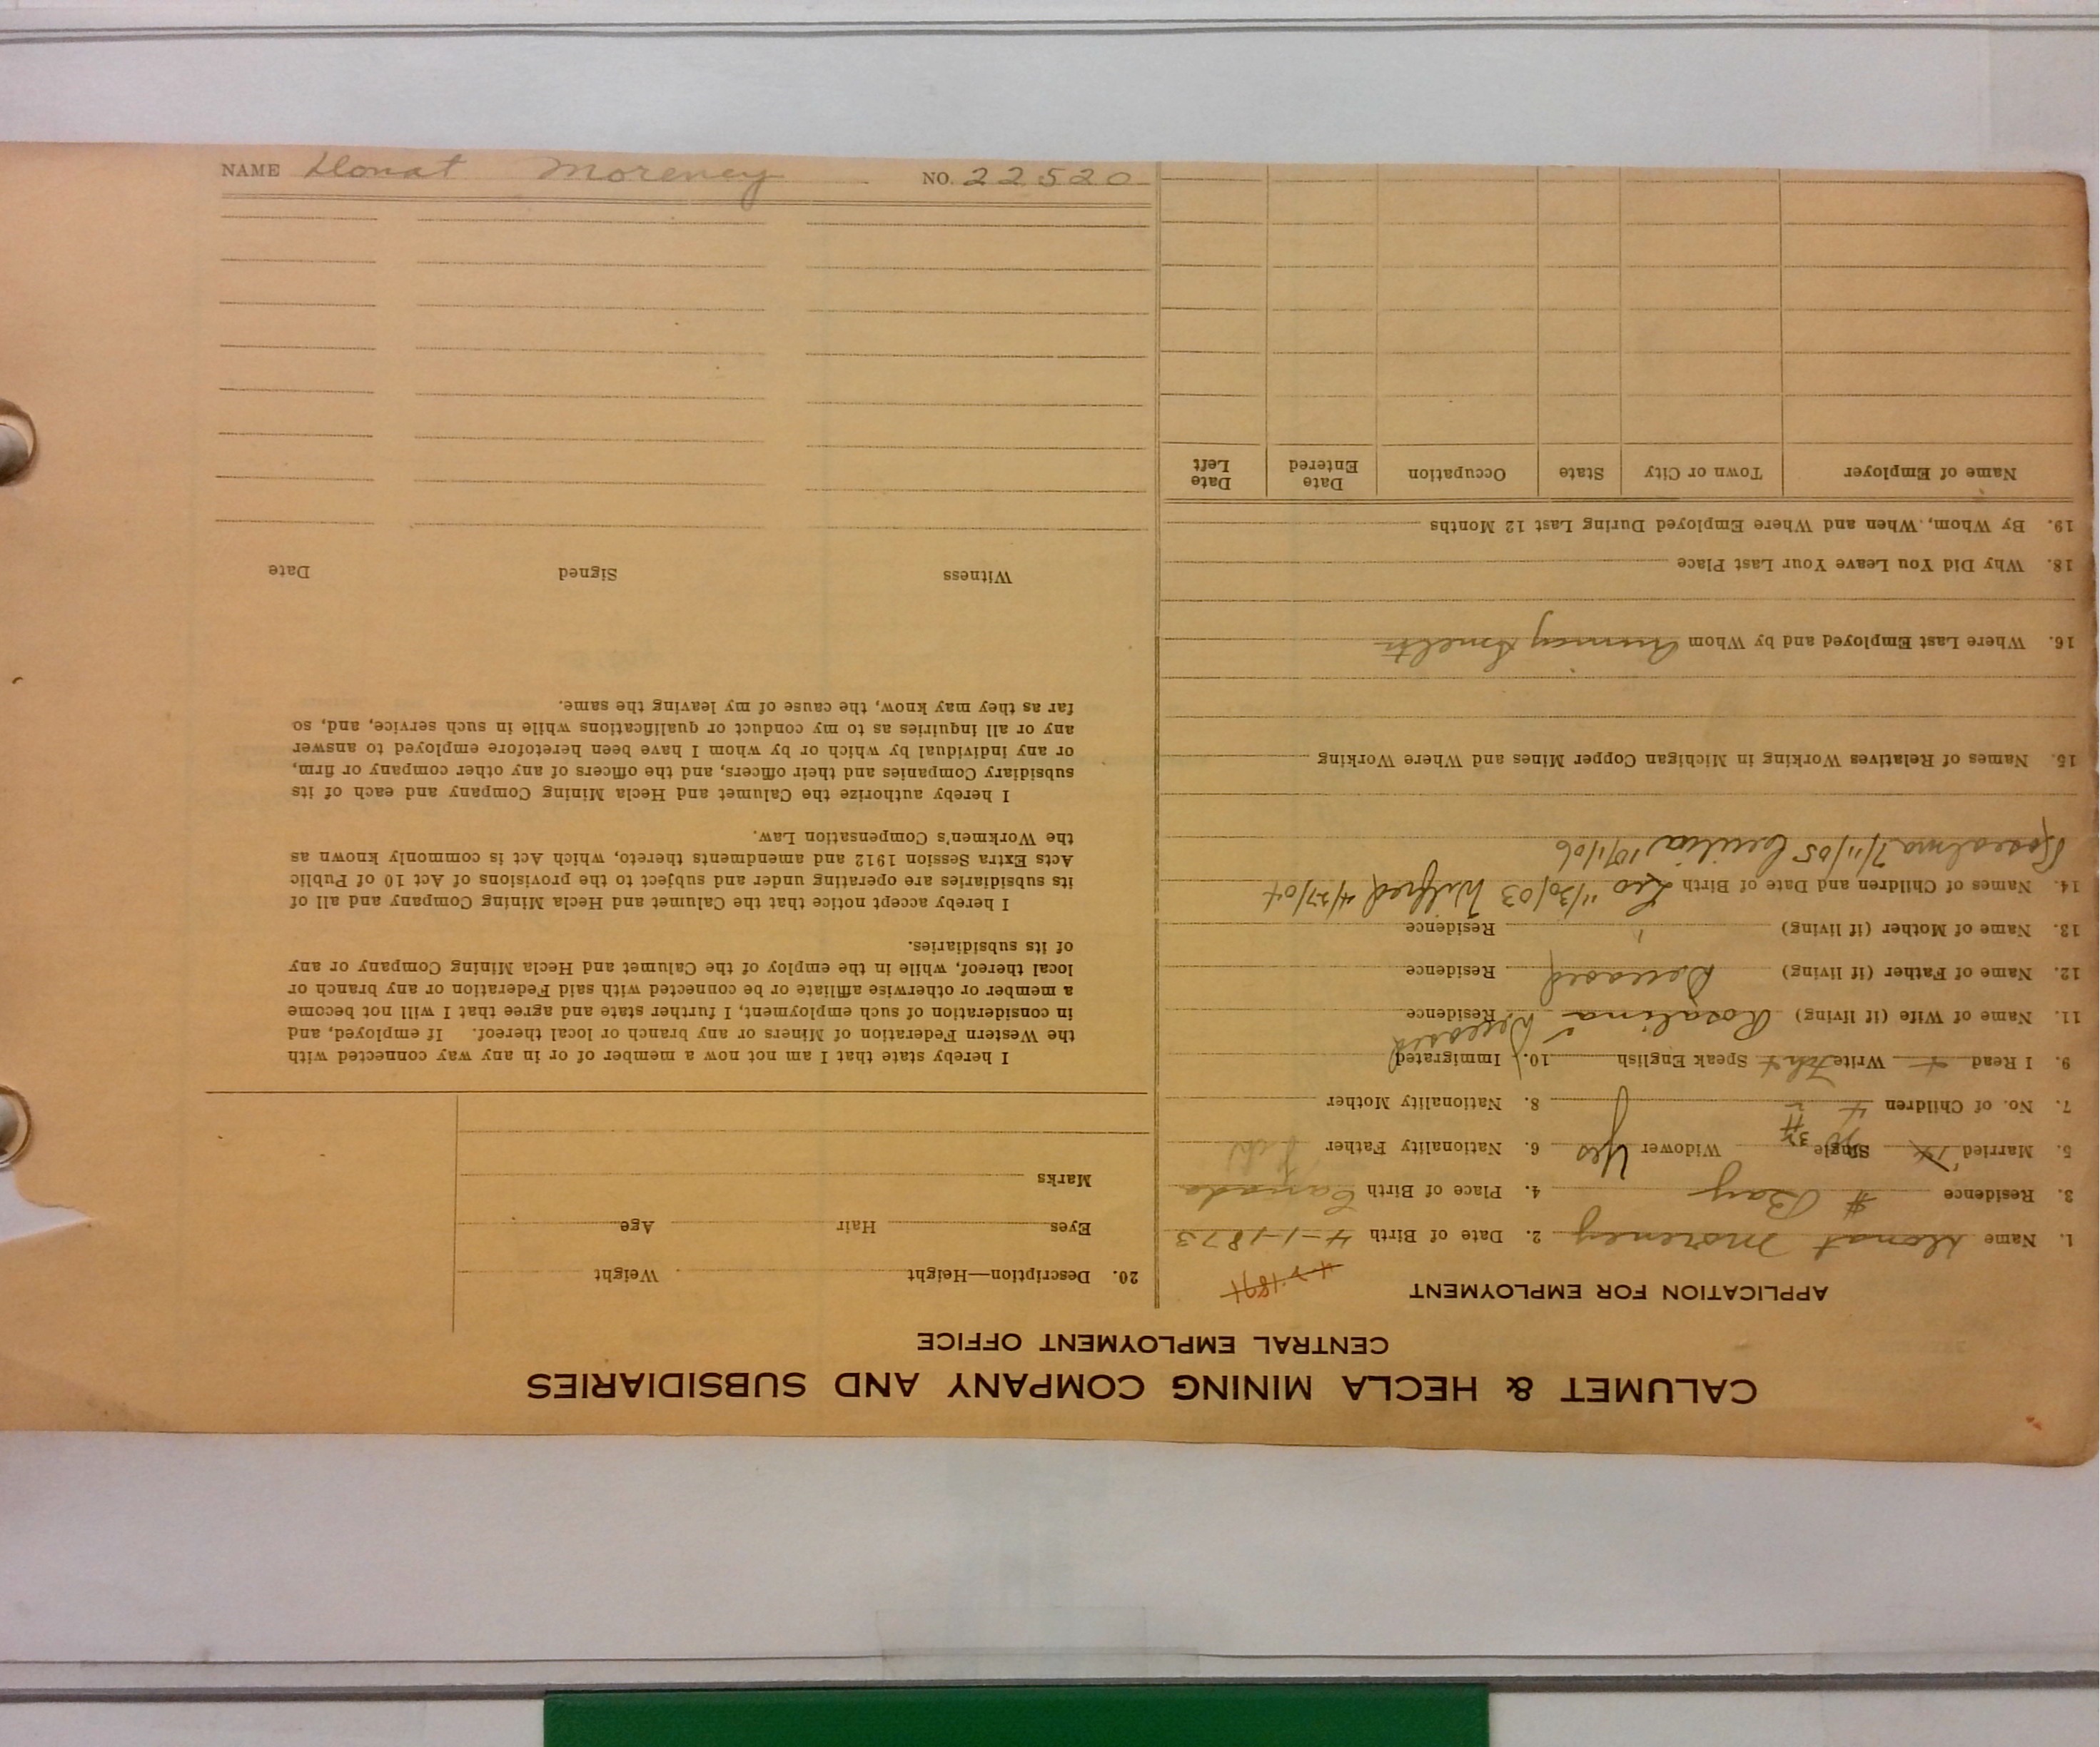 CALUMET & HECLA MINING COMPANY AND SUBSIDIARIES
CENTRAL EMPLOYMENT OFFICE
APPLICATION FOR EMPLOYMENT
1. Name Donat Moreney 2. Date of Birth 4-1-1873
3. Residence # Bay 4. Place of Birth Canada
5. Married Single Widower Yes 6. Nationality Father
7. No. of Children 4 8. Nationality Mother
9. I Read Write Speak English 10. Immigrated
11. Name of Wife (if living) Rosalina Deceased Residence
12. Name of Father (if living) Deceased Residence
13. Name of Mother (if living) " Residence
14. Names of Children and Date of Birth Leo 11/30/03 Wilfred 4/27/04
Rosealma 7/11/05 Cecilia 10/1/06
15. Names of Relatives Working in Michigan Copper Mines and Where Working
16. Where Last Employed and by Whom Quincy Smelter
18. Why Did You Leave Your Last Place
19. By Whom, When and Where Employed During Last 12 Months
Name of Employer Town or City State Occupation Date Entered Date Left
20. Description—Height Weight
Eyes Hair Age
Marks
I hereby state that I am not now a member of or in any way connected with
the Western Federation of Miners or any branch or local thereof. If employed, and
in consideration of such employment, I further state and agree that I will not become
a member or otherwise affiliate or be connected with said Federation or any branch or
local thereof, while in the employ of the Calumet and Hecla Mining Company or any
of its subsidiaries.
I hereby accept notice that the Calumet and Hecla Mining Company and all of
its subsidiaries are operating under and subject to the provisions of Act 10 of Public
Acts Extra Session 1912 and amendments thereto, which Act is commonly known as
the Workmen's Compensation Law.
I hereby authorize the Calumet and Hecla Mining Company and each of its
subsidiary Companies and their officers, and the officers of any other company or firm,
or any individual by which or by whom I have been heretofore employed to answer
any or all inquiries as to my conduct or qualifications while in such service, and, so
far as they may know, the cause of my leaving the same.
Witness Signed Date
NAME Donat Moreney NO. 22520